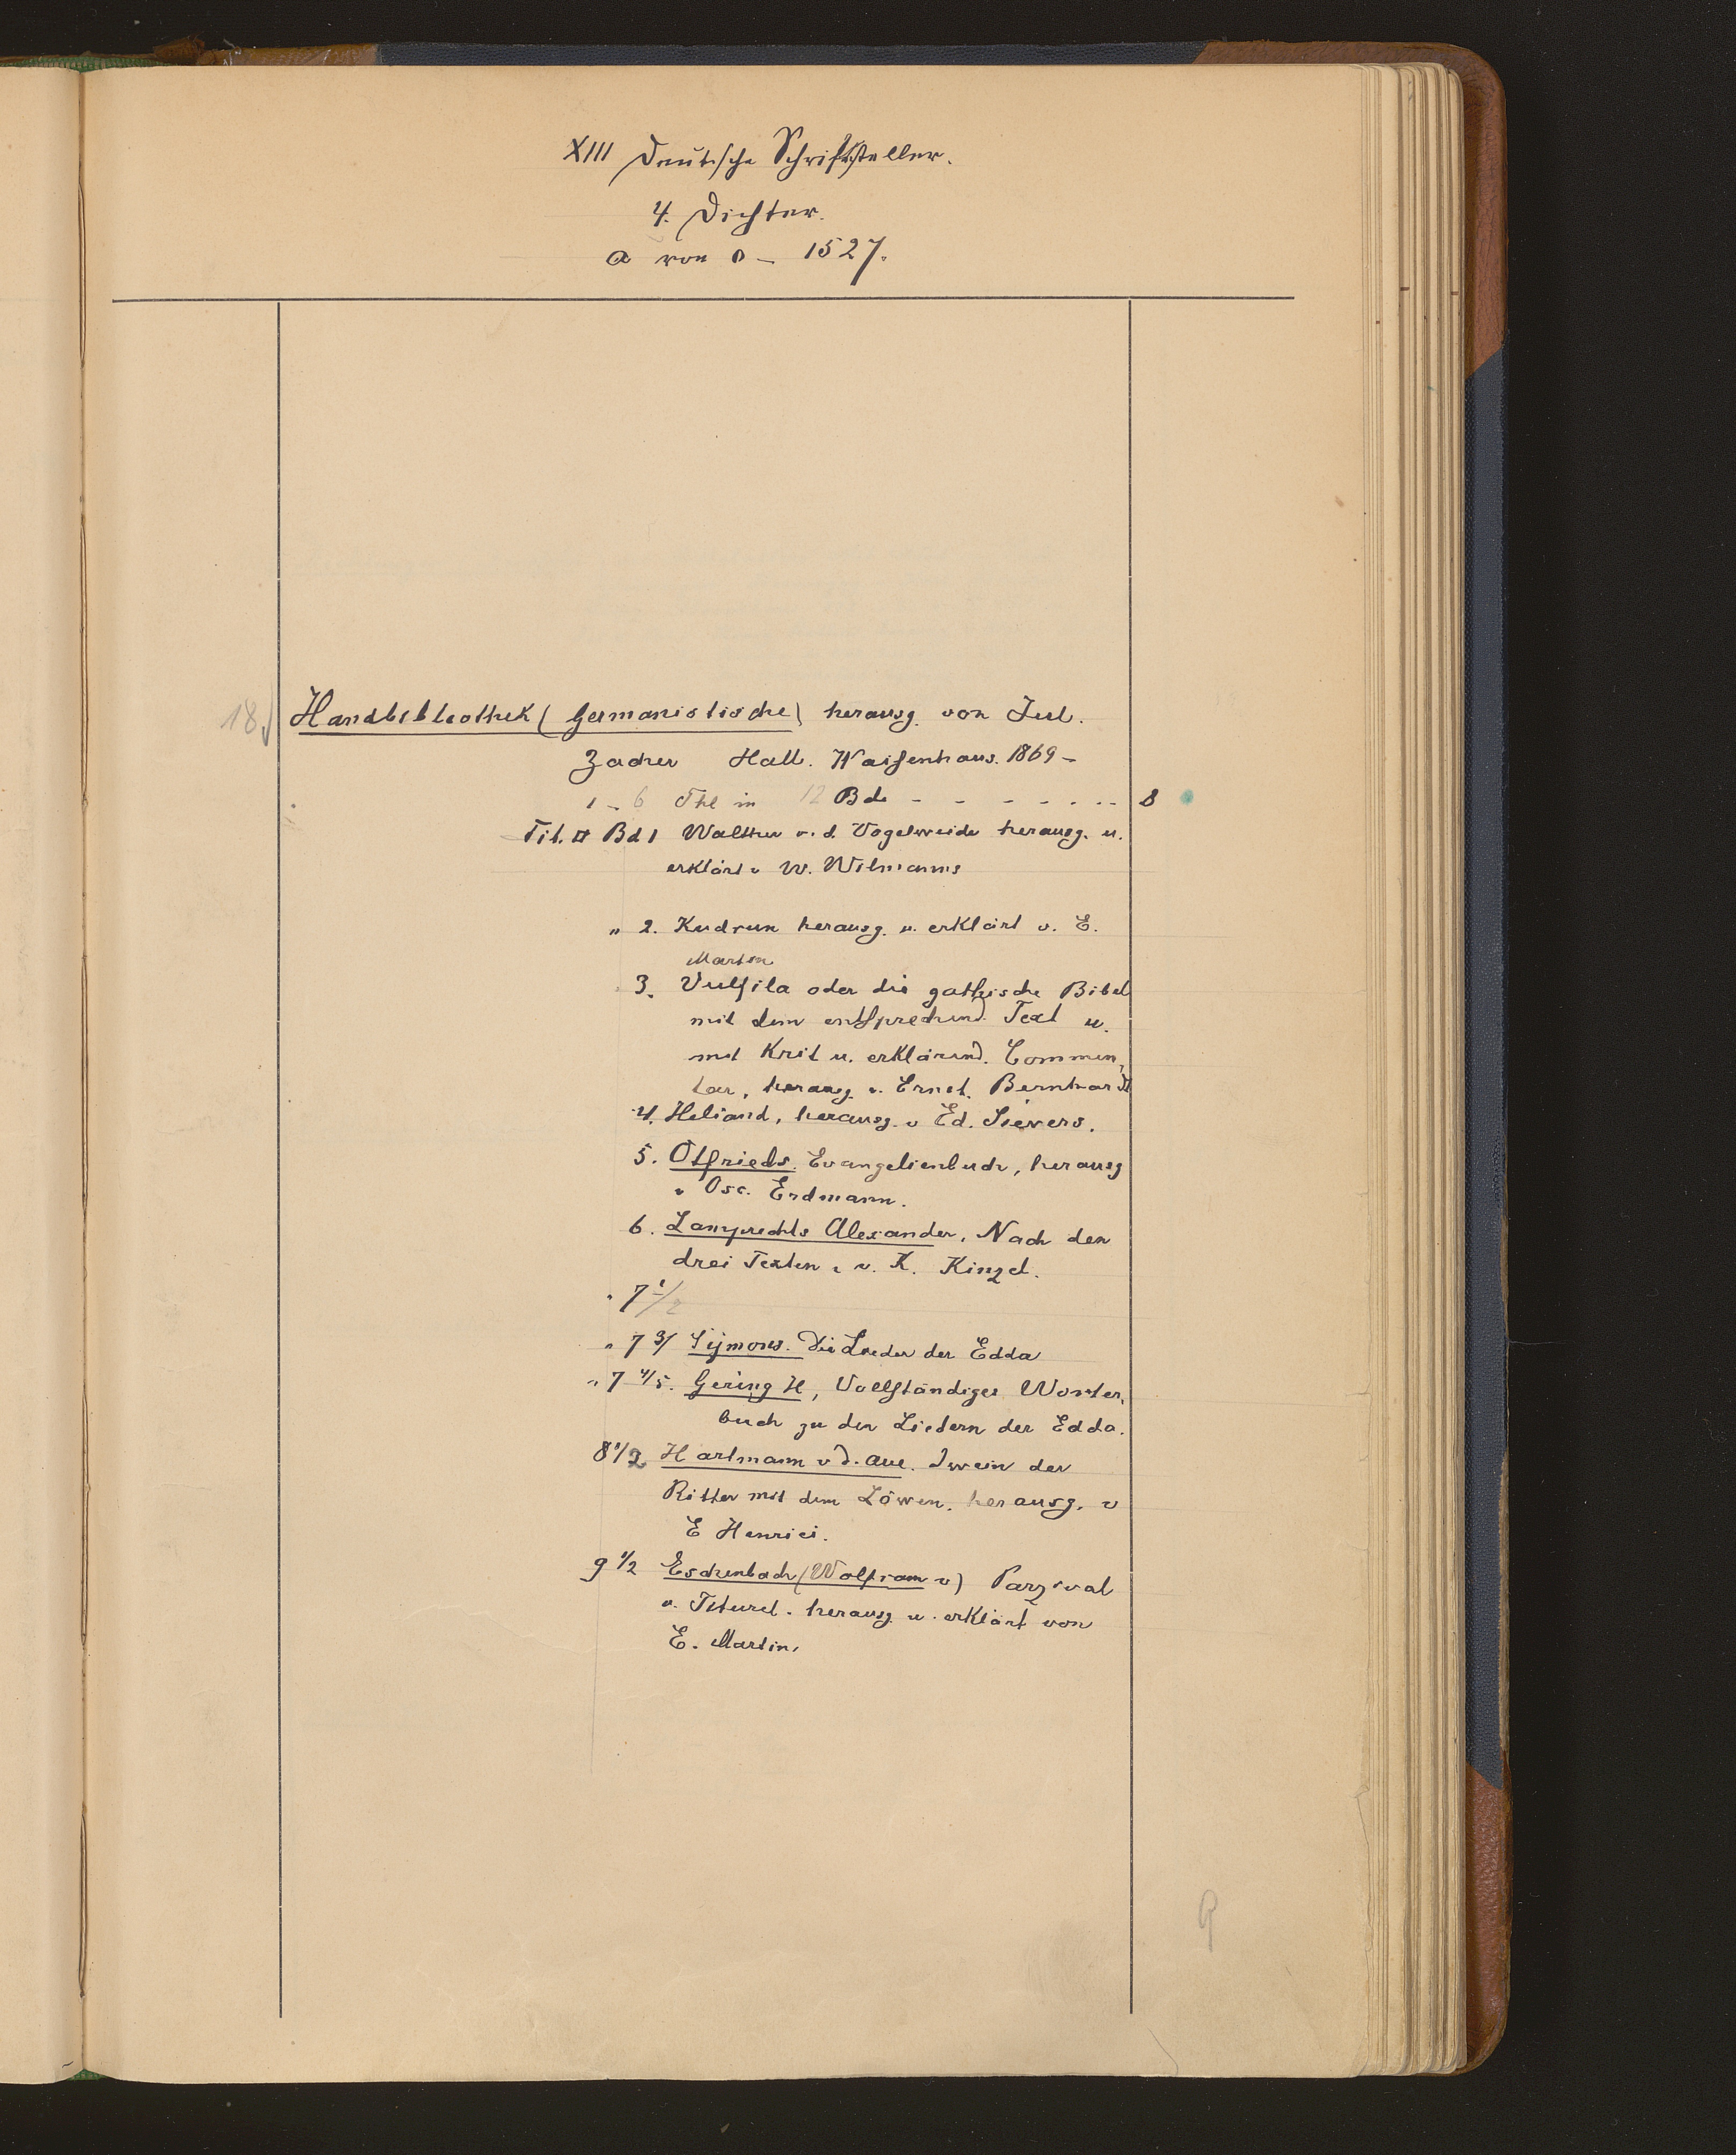 XIII Deutsche Schriftsteller.
4. Dichter.
a von 0 – 1527.
18. Handbibliothek (Germanistische) herausg. von Jul.
Zacher Hall. Waisenhaus. 1869 –
1 – 6 Thl in 12 Bde - - - - - - - 8
Tit. Bd 1 Walther v. d. Vogelweide herausg. u.
erklärt v W. Wilmanns
" 2. Kudrun herausg. u. erklärt v. E.
Martin
3. Vulfila oder die gothische Bibel
mit dem entsprechend. Text u.
mit Krit u. erklärend. Commen,
tar, herausg. v. Ernst. Bernhardt
4. Heliand, herausg. v Ed. Sievers.
5. Otfrieds. Evangelienbuch, herausg
v Osc. Erdmann.
6. Lamprechts Alexander. Nach den
drei Texten v. K. Kinzel.
" 7 1/2
" 7 3/ Sijmons. Die Lieder der Edda
" 7 4/5. Gering H, Vollständiges Wörter,
buch zu den Liedern der Edda.
8 1/2 Hartmann v d. Aue. Iwein der
Ritter mit dem Löwen. herausg. v
E Henrici.
9 1/2 Eschenbach (Wolfram v) Parzival
u. Titurel. herausg. u. erklärt von
E. Martin.